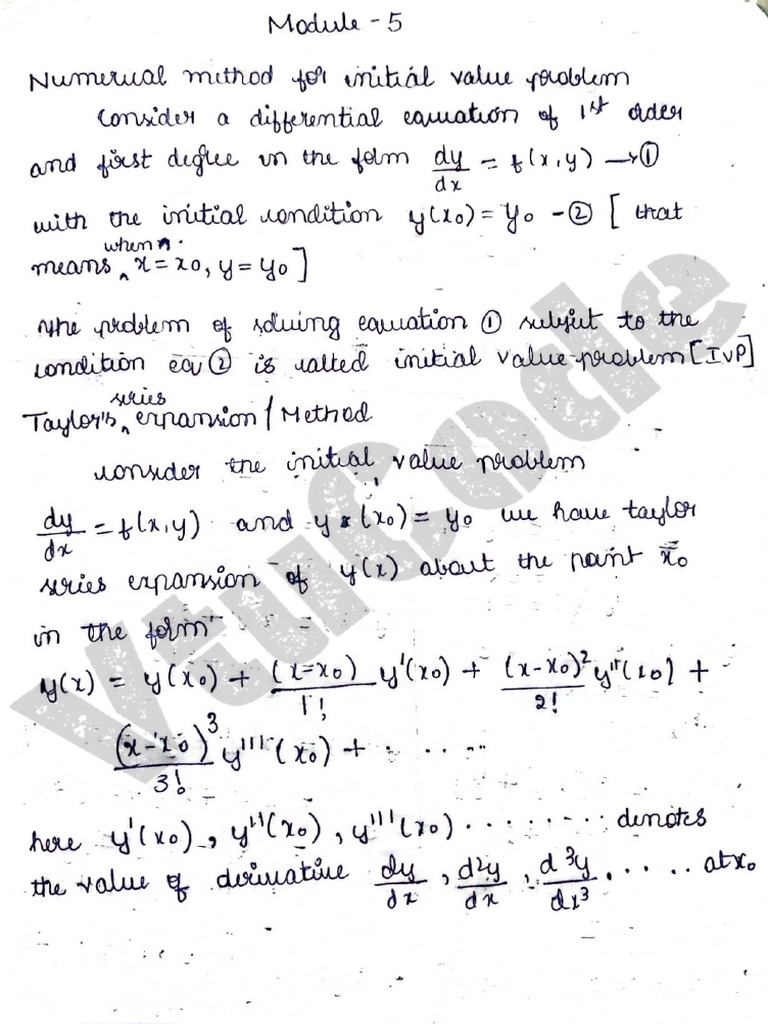 Module - 5
Numerical method for initial value problem
Consider a differential equation of 1st order
and first degree in the form dy/dx = f(x,y) →①
with the initial condition y(x₀) = y₀ - ② [ that
means when x = x₀, y = y₀ ]
The problem of solving equation ① subject to the
condition eq ② is called initial value problem [IVP]
Taylor's series expansion / Method
consider the initial value problem
dy/dx = f(x,y) and y (x₀) = y₀ we have taylor
series expansion of y(x) about the point x₀
in the form
y(x) = y(x₀) + (x-x₀)/1! y'(x₀) + (x-x₀)²/2! y''(x₀) +
(x-x₀)³/3! y'''(x₀) + . . . . .
here y'(x₀) , y''(x₀) , y'''(x₀) . . . . . . . . denotes
the value of derivative dy/dx , d²y/dx , d³y/dx³ . . . . . at x₀
VTUCode